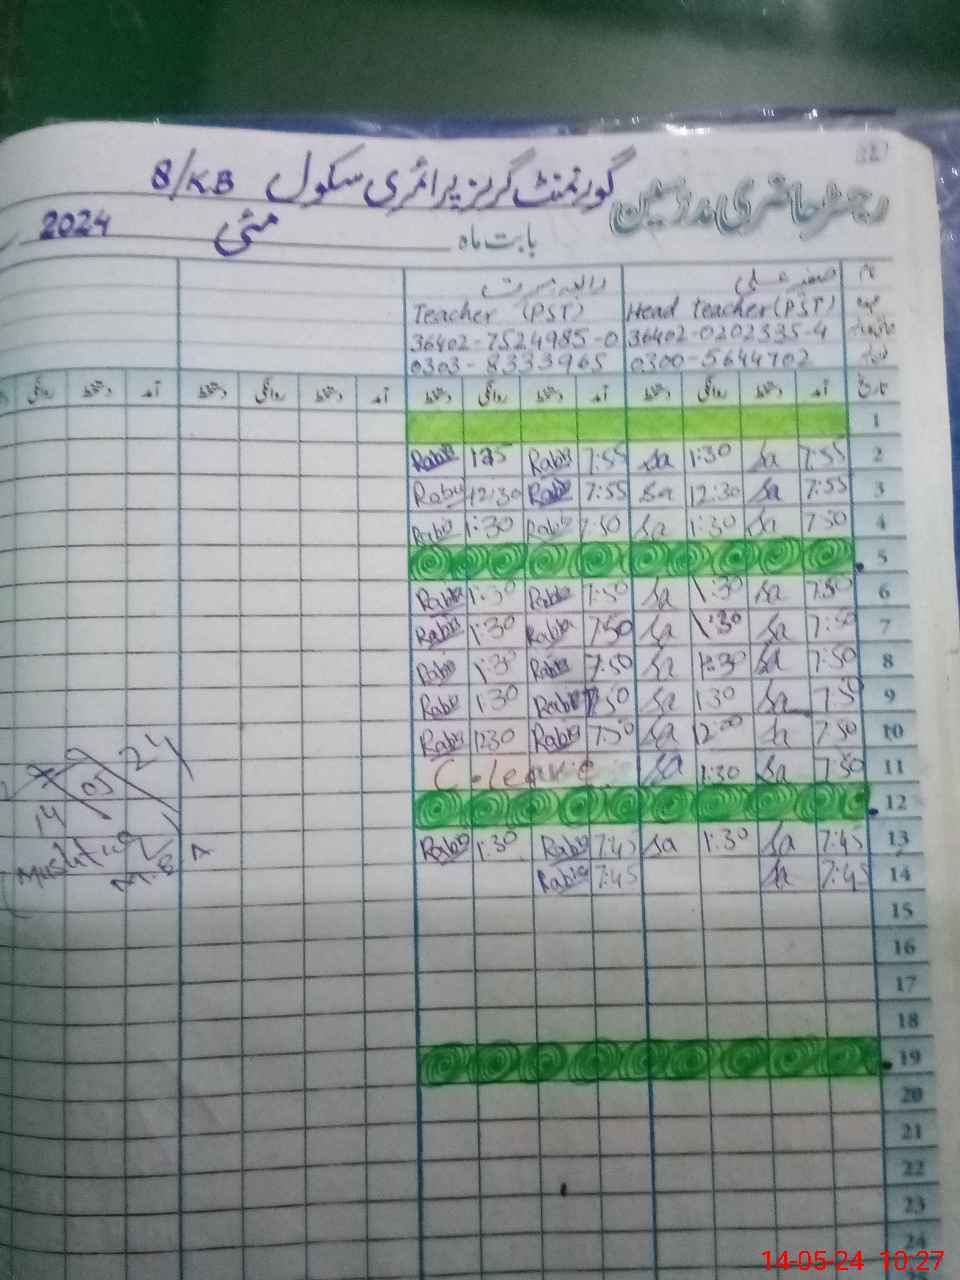 رجسٹر حاضری مدرسین گورنمنٹ گرلز پرائمری سکول 8/KB
بابت ماہ مئی 2024
نام صفدر علی رابعہ
عہدہ Head teacher (PST) Teacher (PST)
36402-0202335-4 36402-7524985-0
0300-5644702 0303-8333965
تاریخ آمد دستخط روانگی دستخط آمد دستخط روانگی دستخط آمد دستخط روانگی دستخط آمد دستخط روانگی
1
2 7:55 Sa 1:30 Sa 7:55 Rabia 1:25 Rabia
3 7:55 Sa 12:30 Sa 7:55 Rabia 12:30 Rabia
4 7:50 Sa 1:30 Sa 7:50 Rabia 1:30 Rabia
5
6 7:50 Sa 1:30 Sa 7:50 Rabia 1:30 Rabia
7 7:50 Sa 1:30 Sa 7:50 Rabia 1:30 Rabia
8 7:50 Sa 1:30 Sa 7:50 Rabia 1:30 Rabia
9 7:5 Sa 1:30 Sa 7:50 Rabia 1:30 Rabia
10 7:50 Sa 12:00 Sa 7:50 Rabia 1230 Rabia
11 7:50 Sa 1:30 Sa C-leave
12
13 7:45 Sa 1:30 Sa 7:45 Rabia 1:30 Rabia
14 7:45 Sa 7:45 Rabia
15
16
17
18
19
20
21
22
23
24
14 05 24
14-05-24 10:27